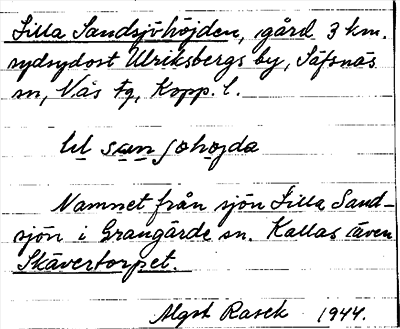 Lilla Sandsjöhöjden, gård 3 km.
sydsydost Ulriksbergs by, Säfsnäs
sn, Nås tg, Kopp. l.
lil san ʃøhøjda
Namnet från sjön Lilla Sand-
sjön i Grangärde sn. Kallas även
Skävertorpet.
Algot Rasek 1944.